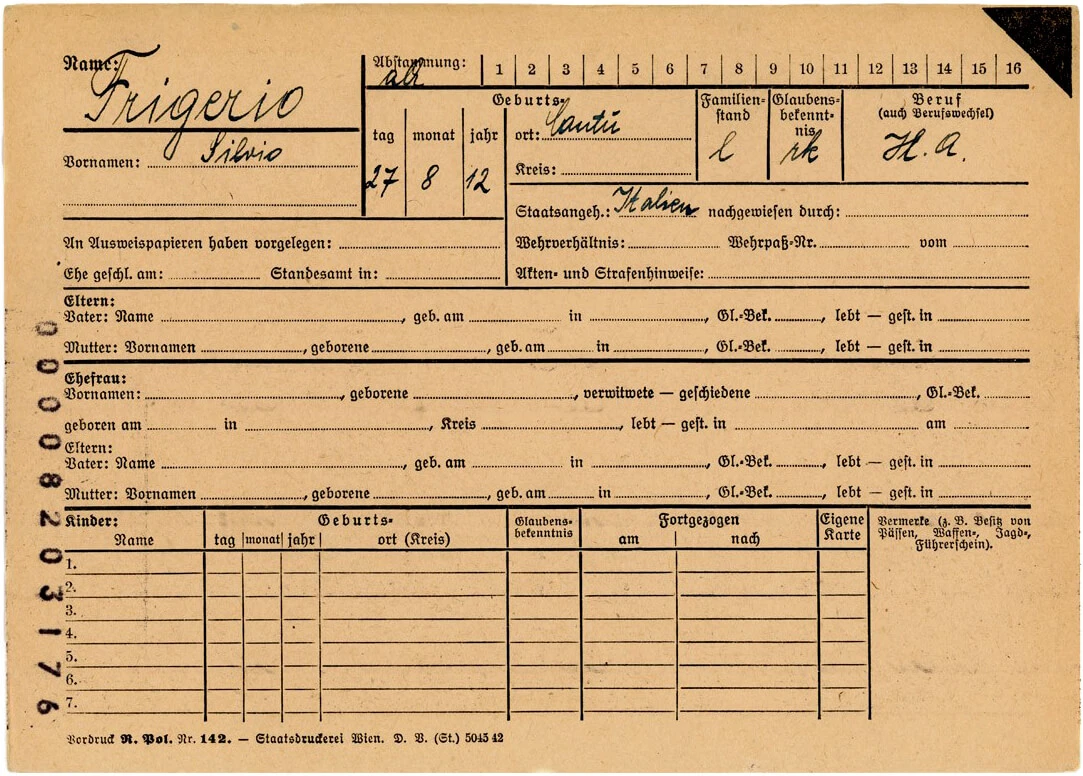 Name: Frigerio
Vornamen: Silvio
Abstammung: 1 2 3 4 5 6 7 8 9 10 11 12 13 14 15 16
Geburts-
tag monat jahr
27 8 12
ort: Cantù
Kreis:
Familien-
stand
l
Glaubens-
bekennt-
nis
rk
Beruf
(auch Berufswechsel)
H. A.
Staatsangeh.: Italien nachgewiesen durch:
An Ausweispapieren haben vorgelegen:
Wehrverhältnis: Wehrpaß-Nr. vom
Ehe geschl. am: Standesamt in:
Akten- und Strafenhinweise:
Eltern:
Vater: Name , geb. am in , Gl.-Bek. , lebt — gest. in
Mutter: Vornamen , geborene , geb. am in , Gl.-Bek. , lebt — gest. in
Ehefrau:
Vornamen: , geborene , verwitwete — geschiedene , Gl.-Bek.
geboren am in , Kreis , lebt — gest. in am
Eltern:
Vater: Name , geb. am in , Gl.-Bek. , lebt — gest. in
Mutter: Vornamen , geborene , geb. am in , Gl.-Bek. , lebt — gest. in
Kinder:
Name
Geburts-
tag monat jahr ort (Kreis)
Glaubens-
bekenntnis
Fortgezogen
am nach
Eigene
Karte
Vermerke (z. B. Besitz von
Pässen, Waffen-, Jagd-,
Führerschein).
1.
2.
3.
4.
5.
6.
7.
Vordruck R. Pol. Nr. 142. — Staatsdruckerei Wien. D. V. (St.) 5045 42
00008203176